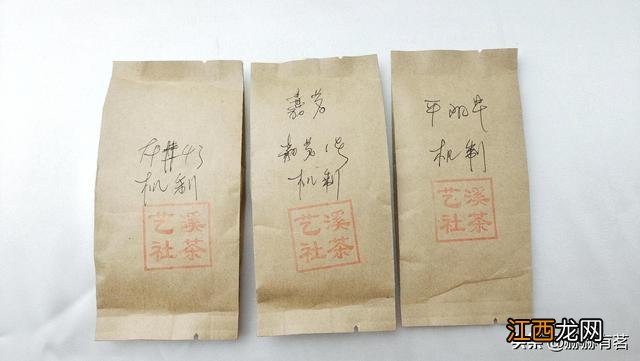 龙井43
机制
溪茶
艺社
嘉茗
嘉茗1号
机制
溪茶
艺社
平阳
机制
溪茶
艺社
头条@赫赫有茗
江西龙网